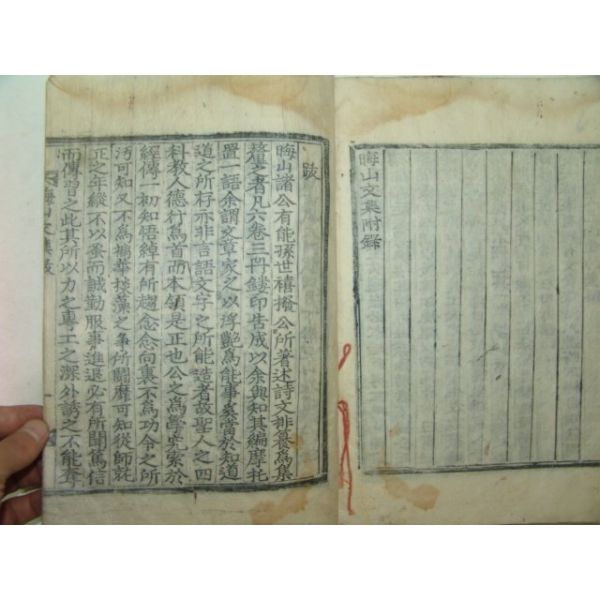 晦山文集附錄
跋
晦山諸公有能孫世禧撥公所著述詩文排纂爲集
整之者凡六卷三冊鏤印告成以余與知其編摩托
置一語余謂文章家之以浮艶爲能事奚當於知道
道之所存亦非言語文字之所能造者故聖人之四
科教人德行爲首而本領是正也公之爲學宲索於
經傳一初知悟綽有所趨念念向裏不爲功令之所
汚可知又不爲摛華掞藻之習所鬪靡可知從師就
正之年縱不以蚤而誠勤服事進退必有所聞篤信
而傳習之此其所以力之專工之深外誘之不能奪
晦山文集跋